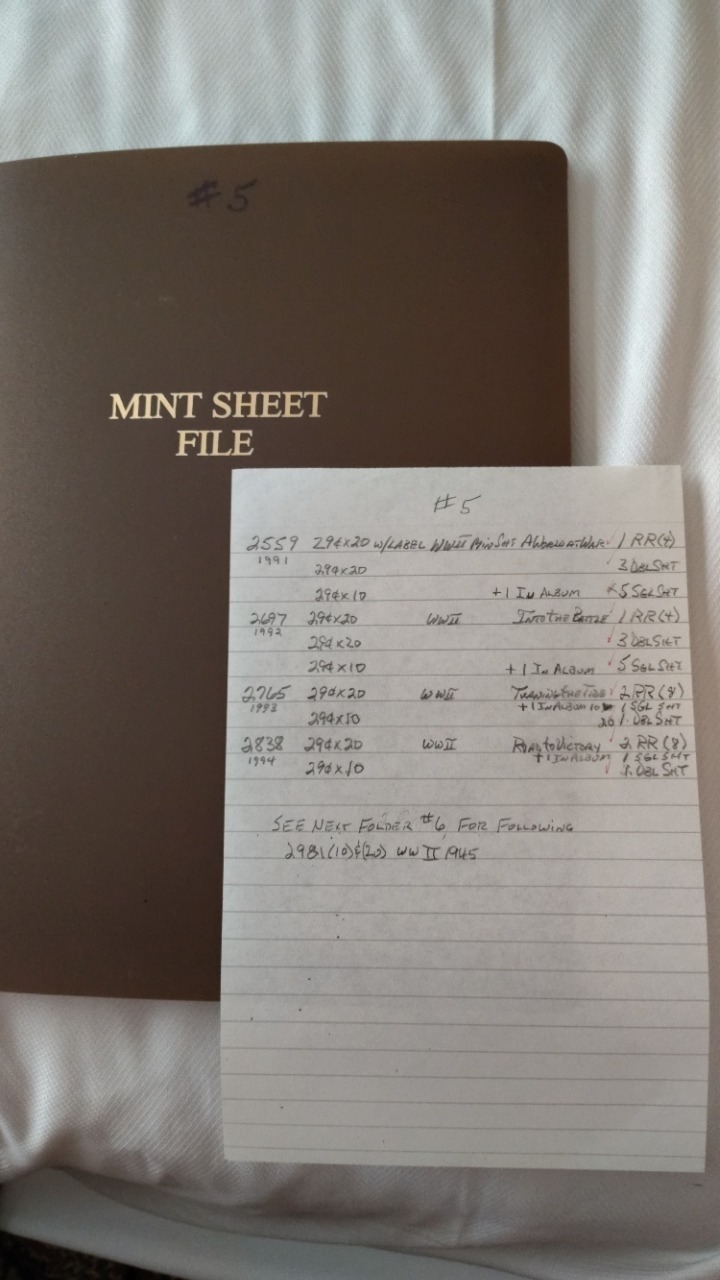 #5
MINT SHEET
FILE
#5
2559 29¢x20 w/LABEL WWII MIN SHT A WORLD AT WAR 1 RR(4)
1991
29¢x20 3 DBL SHT
29¢x10 +1 IN ALBUM 5 SGL SHT
2697 29¢x20 WWII INTO THE BATTLE 1 RR(4)
1992
29¢x20 3 DBL SHT
29¢x10 +1 IN ALBUM 5 SGL SHT
2765 29¢x20 WWII TURNING THE TIDE 2 RR(8)
1993 +1 IN ALBUM 10 1 SGL SHT
29¢x10 20 1 DBL SHT
2838 29¢x20 WWII ROAD TO VICTORY 2 RR(8)
1994 +1 IN ALBUM 1 SGL SHT
29¢x10 1 DBL SHT
SEE NEXT FOLDER #6, FOR FOLLOWING
2981(10)&(20) WW II 1945